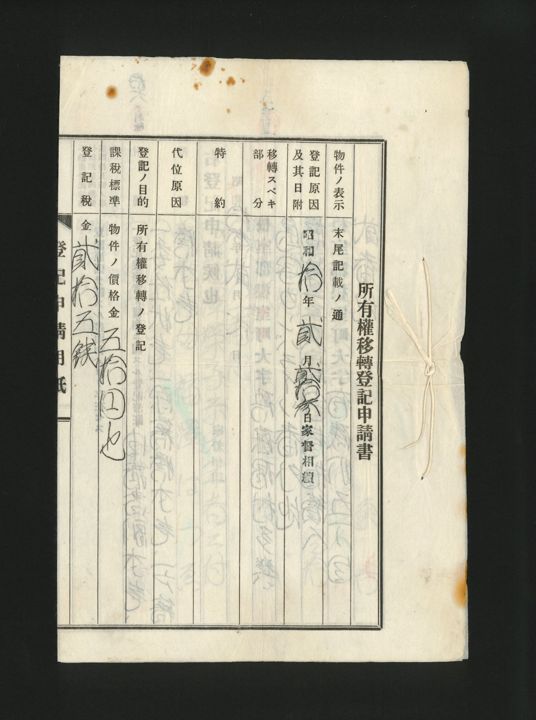 所有權移轉登記申請書
物件ノ表示 末尾記載ノ通
登記原因及其日附 昭和拾年貳月 日家督相續
移轉スベキ部分
特約
代位原因
登記ノ目的 所有權移轉ノ登記
課税標準 物件ノ價格金五拾円也
登記税 金貳拾五銭
登記申請用紙